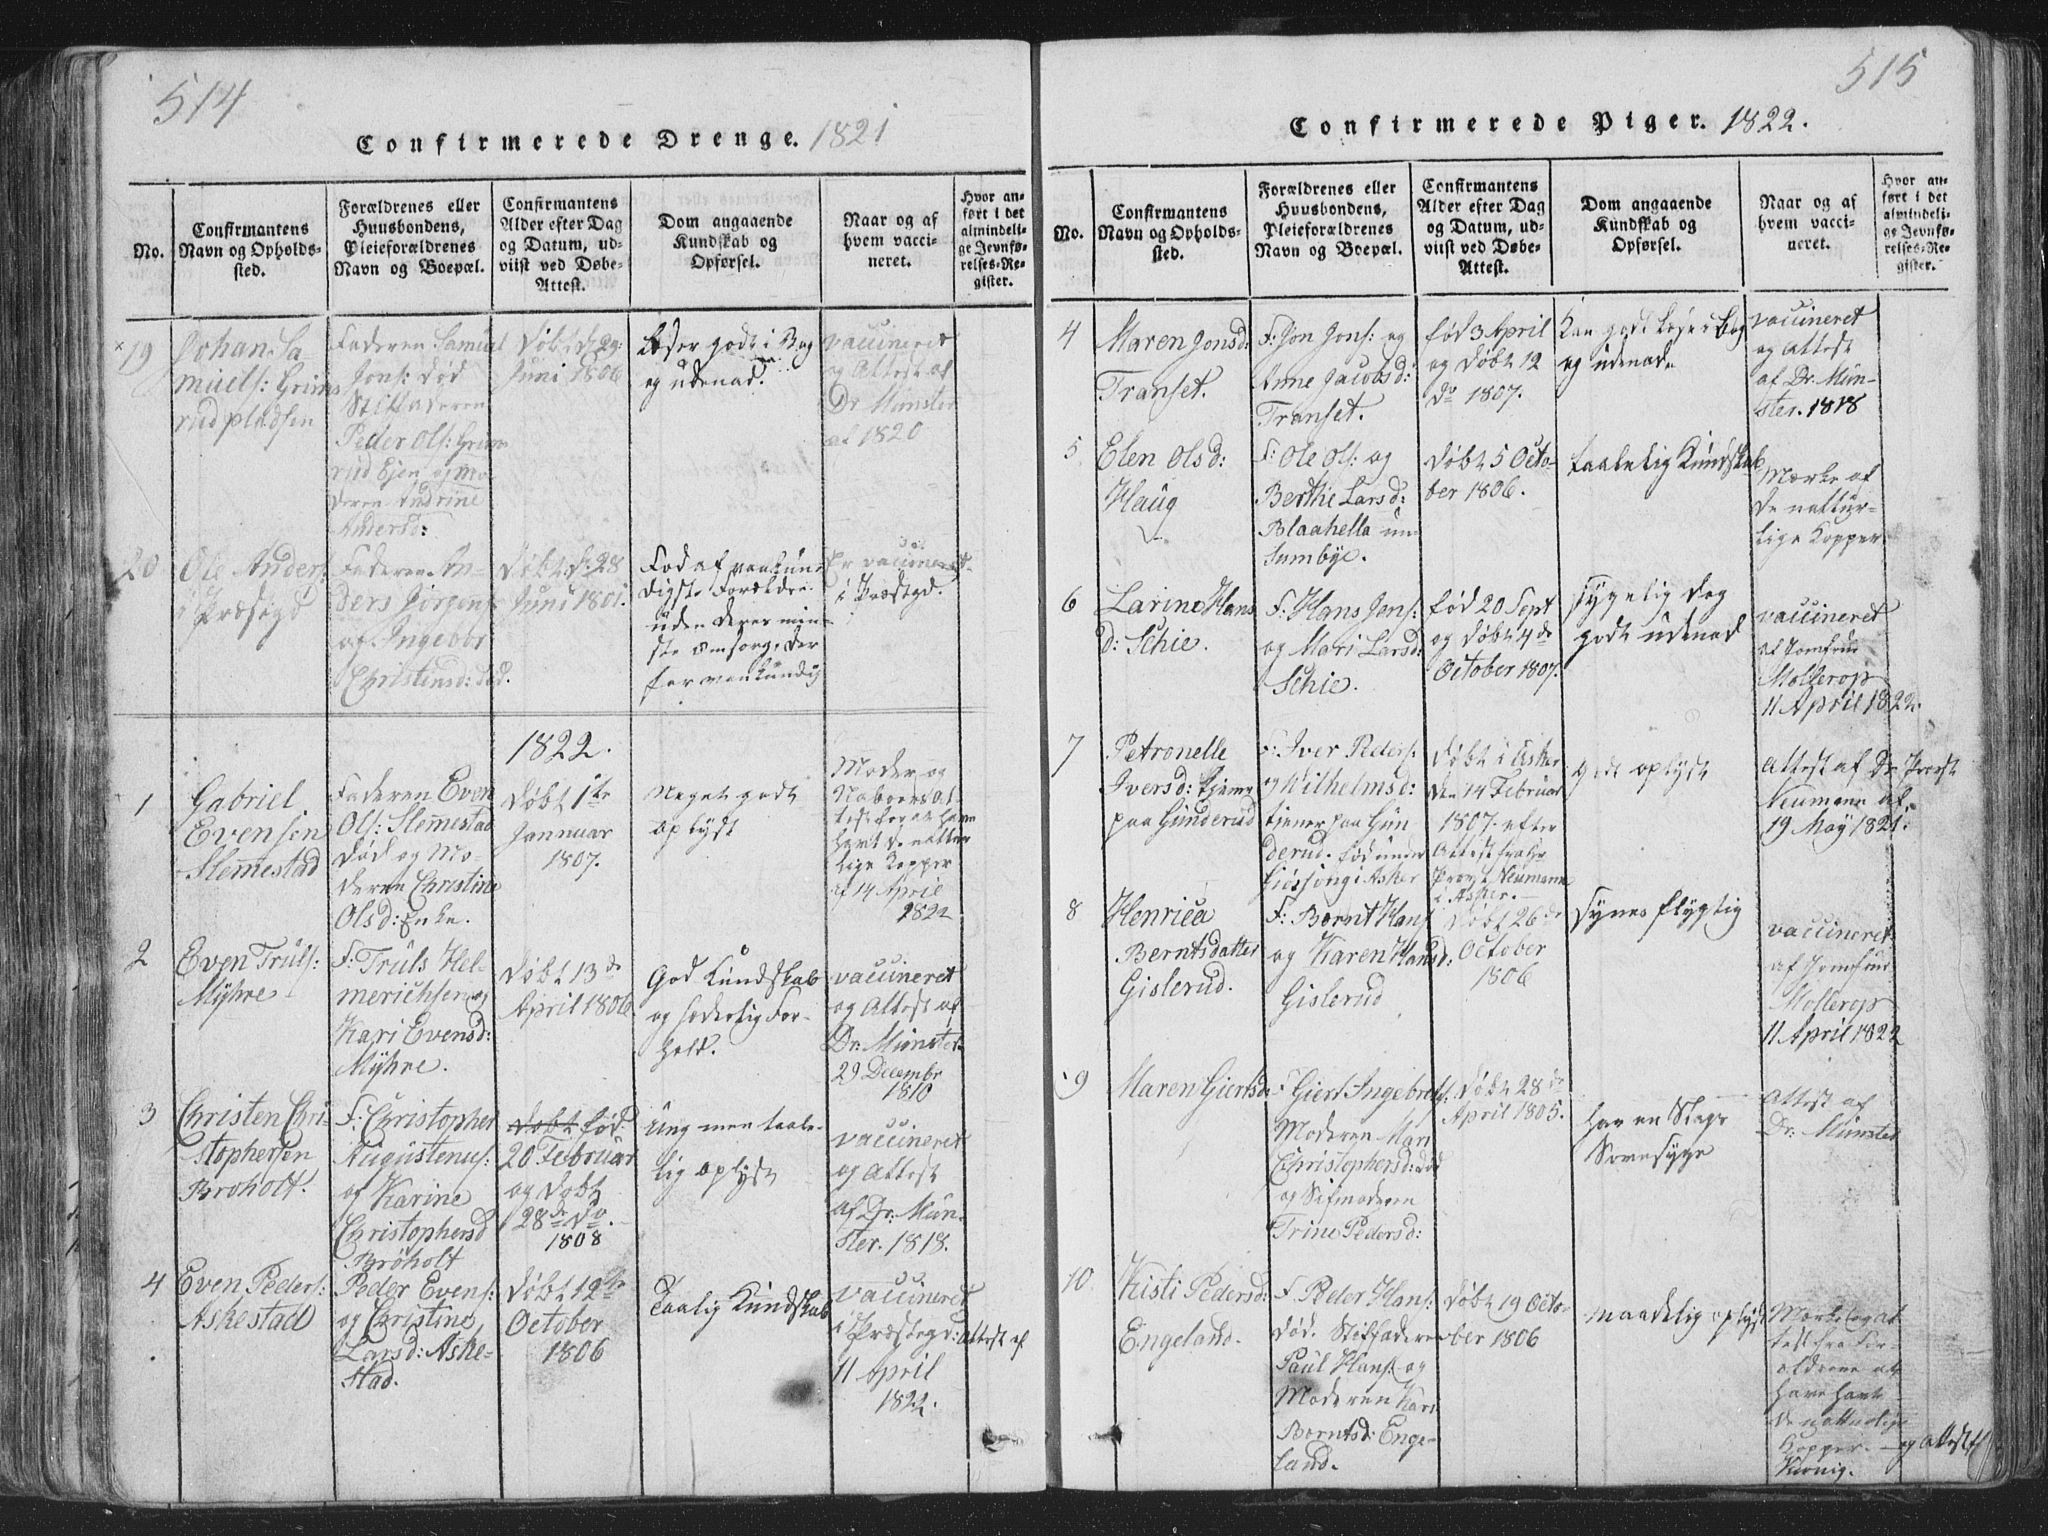 514
Confirmerede Drenge. 1821
No.
Confirmantens
Navn og Opholds-
sted.
Forældrenes eller
Huusbondens,
Pleieforældrenes
Navn og Boepæl.
Confirmantens
Alder efter Dag
og Datum, ud-
viist ved Døbe-
Attest.
Dom angaaende
Kundskab og
Opførsel.
Naar og af
hvem vacci-
neret.
Hvor an-
ført i det
almindeli-
ge Jevnfø-
relses-Re-
gister.
19
Johan Sa-
muels: Grims
rud pladsen
Faderen Samuel
Jons: død
Stiffaderen
Peder Ols: Grim
rud Ejen og Mo
deren Andrine
Andersd:
Døbt d. 29:
Juni 1806
Læser godt i Bog
og udenad.
vaccineret
og Attest af
Dr. Münster
af 1820
20
Ole Anders:
i Præstegd
Faderen An-
ders Jörgens:
af Ingebor
Christensd: død.
Døbt d. 28
Juni 1801.
Fød af vankun-
digste Forældre
uden deres min-
ste omsorg, der
for vankundig
Er vaccineret
i Præstegd.
1822.
1
Gabriel
Evensen
Slemestad
Faderen Even
Ols: Slemestad
død og Mo-
deren Christine
Olsd: Enke.
Døbt 1te
Jannuar
1807.
Noget godt
oplyst
Moder og
Naboers At-
test for at have
havt de nattur
lige Kopper
af 14 April
1822
2
Even Truls:
Myhre
F: Truls Hel-
merichsen og
Kari Evensd:
Myhre.
Døbt 13de
April 1806
God Kundskab
og hæderlig For-
hold.
vaccineret
og Attest af
Dr: Münster
29 Decembr
1810
3
Christen Chri-
stophersen
Broholt.
F: Christopher
Augustenus:
af Karine
Christophersd
Bröholt
Døbt fød
20 Februar
og døbt
28de do.
1808
Ung men taale-
lig oplyst
vaccineret
og Attest
af Dr: Mün-
ster. 1818.
4
Even Peders:
Askestad
Peder Evens:
og Christine
Larsd: Aske-
stad.
Døbt 12te
October
1806
Taalig Kundskab
vaccineret
i Præstegd: Attest af
11 April
1822.
515
Confirmerede Piger. 1822.
No.
Confirmantens
Navn og Opholds-
sted.
Forældrenes eller
Huusbondens,
Pleieforældrenes
Navn og Boepæl.
Confirmantens
Alder efter Dag
og Datum, ud-
viist ved Døbe-
Attest.
Dom angaaende
Kundskab og
Opførsel.
Naar og af
hvem vacci-
neret.
Hvor an-
ført i det
almindeli-
ge Jevnfø-
relses-Re-
gister.
4
Maren Jonsd:
Transet.
F: Jon Jons: og
Anne Jacobsd:
Transet.
fød 3 April
og døbt 12
do 1807.
Kan godt læse i Bog
og udenad
vaccineret
og Attest
af Dr. Mün-
ster. 1818
5
Elen Olsd:
Haug
F: Ole Ols: og
Berthe Larsd:
Blaahella un-
Sumbye.
Døbt 5 Octo-
ber 1806.
taalelig Kundskab
Mærke af
de nattur-
lige Kopper
6
Larine Hans
d: Schie.
F: Hans Jens:
og Mari Larsd:
Schie.
fød 20 Sept
og døbt 4de
October 1807.
sygelig dog
godt udenad
vaccineret
af Jomfrue
Mollerop
11 April 1822.
7
Petronelle
Iversd: tjener
paa Gunderud
F: Iver Peders:
og Wilhelmsd:
tjener paa Gün
derud. født under
i Asker
Døbt i Asker
den 14 Februar
1807. efter
Attest fra Hr
Provst Neumann
i Asker.
godt oplyst
Attest af Dr. Provst
Neumann af
19 May 1821.
8
Henrica
Berntsdatter
Gislerud.
F: Bernt Hans
og Karen Hansd:
Gislerud
Døbt 26de
October
1806
Synes flygtig
vaccineret
af Jomfrue
Mollerop
11 April 1822
9
Maren Giertsd
F Giert Ingebreths:
Moderen Mari
Christophersd: død
og Stifmoderen
Trine Pedersd:
Døbt 28de
April 1805.
har en Slags
Sovesyge
Attest af
Dr: Münster
10
Kisti Pedersd:
Engeland.
F. Peder Hans:
død. Stiffaderen
Paul Hans: og
Moderen Kari
Berntsd: Enge-
land.
Døbt 19 Octo-
ber 1806
maadelig oplyst
Mærke og At-
test fra For-
ældrene at
have havt
de naturlige
Kopper. – og Attest af